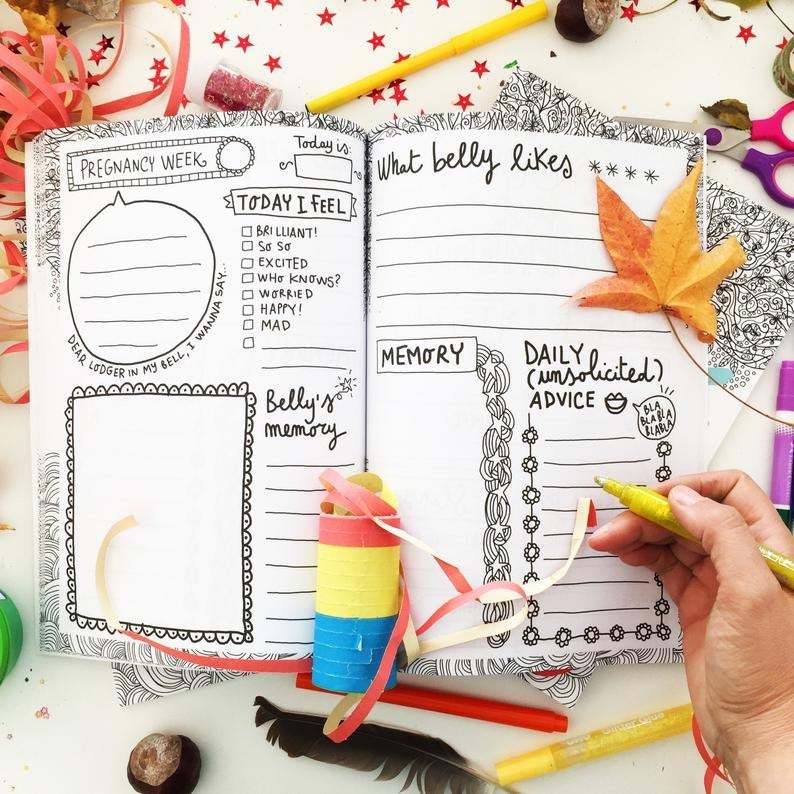 PREGNANCY WEEK
Today is:
TODAY I FEEL
BRILLIANT!
SO SO
EXCITED
WHO KNOWS?
WORRIED
HAPPY!
MAD
DEAR LODGER IN MY BELL, I WANNA SAY...
Belly's
memory
What belly likes
MEMORY
DAILY
(unsolicited)
ADVICE
BLA
BLA BLA
BLABLA